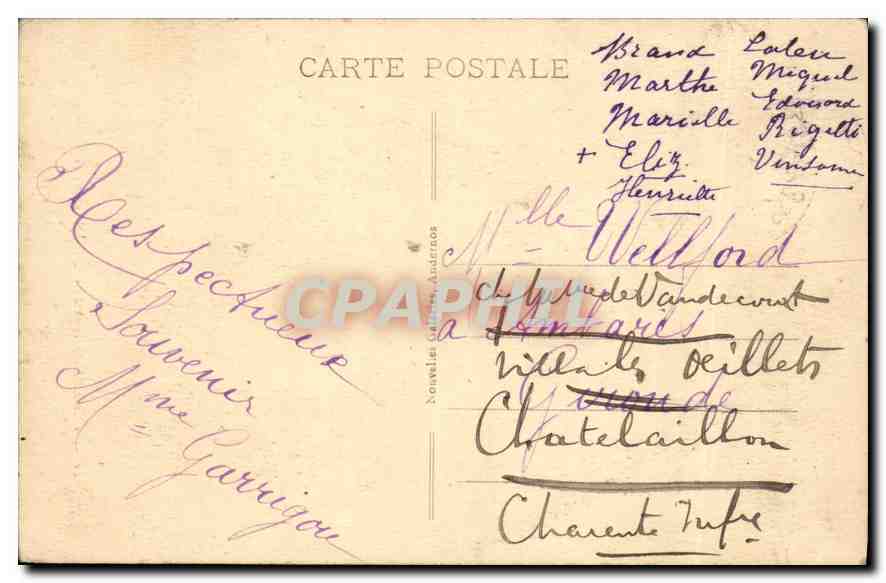 CARTE POSTALE
Brand
Marthe
Marielle
+ Eliz
Henriette
Miguel
Edouard
Rigetti
Respectueux
Souvenir
Mme Garrigou
Nouvelles Galeries, Andernos
Mlle Wellford
de Vandecourt
a Ambarès
Villa les Oeillets
Gironde
Chatelaillon
Charente Infre
CPAPHIL